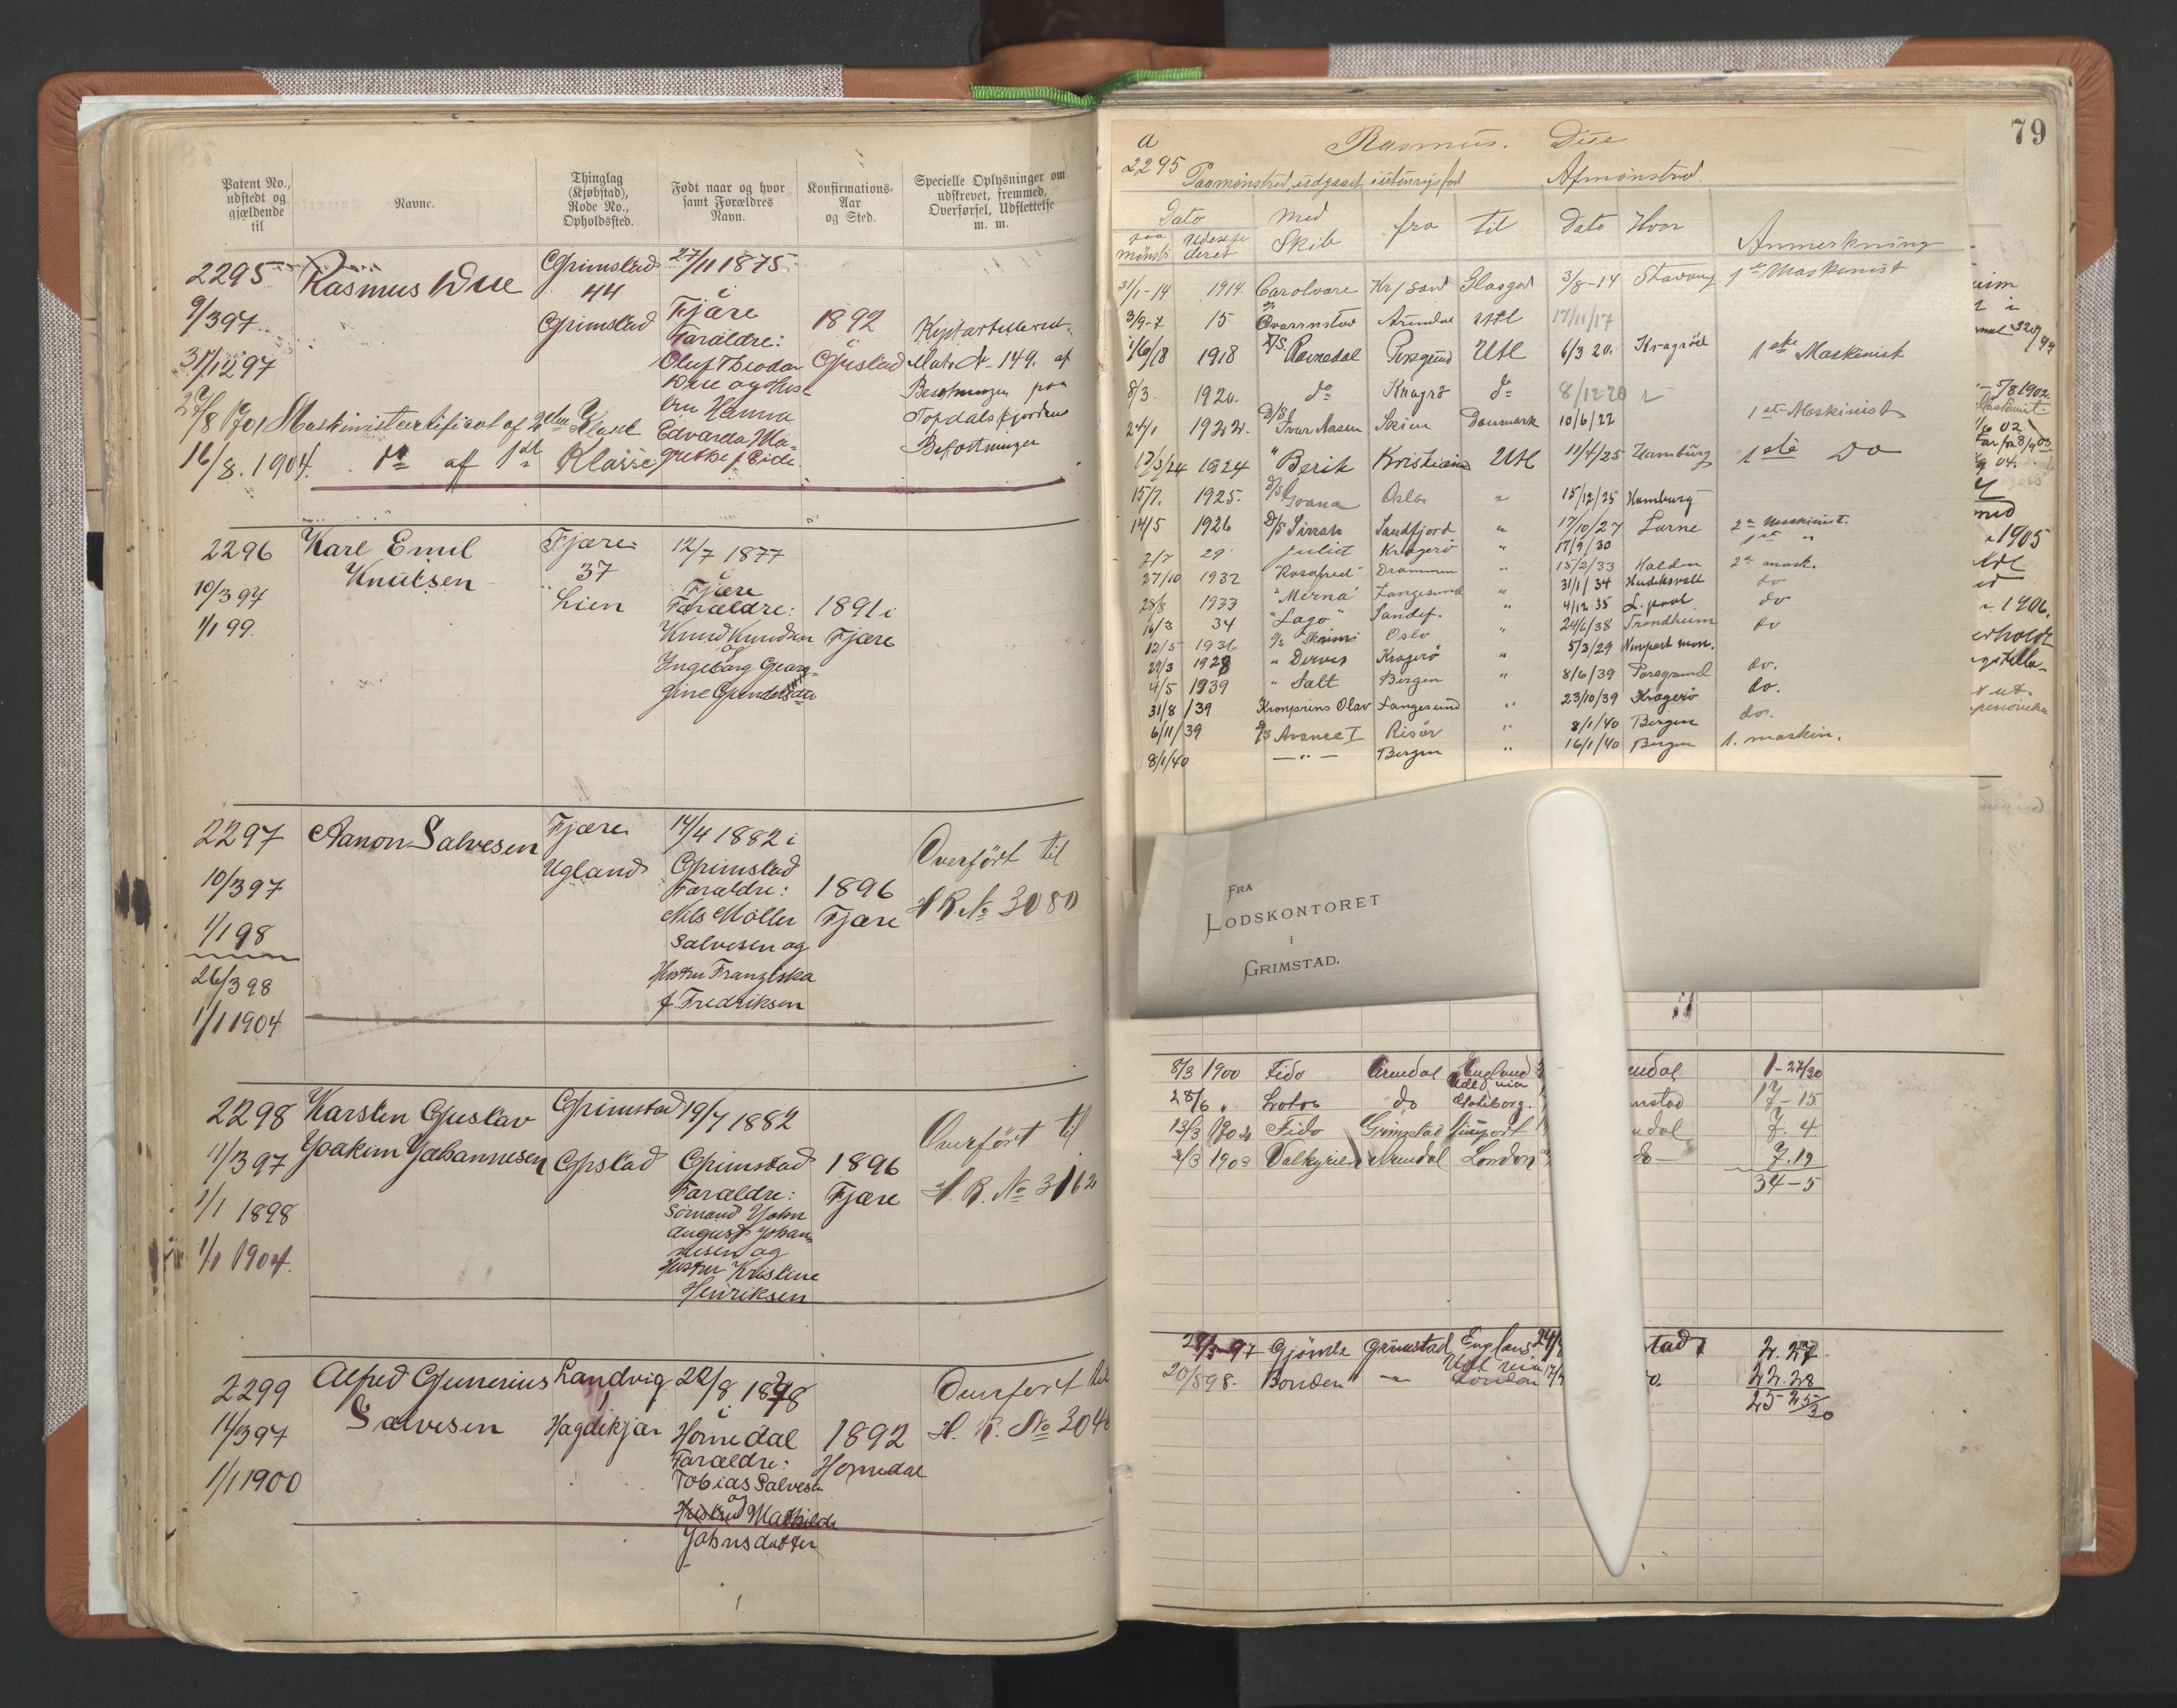 Patent No., udstedt og gjældende til
Navne.
Thinglag (Kjøbstad), Rode No., Opholdssted.
Født naar og hvor samt Forældres Navn.
Konfirmations-Aar og Sted.
Specielle Oplysninger om udskrevet, fremmed, Overførsel, Udslettelse m. m.
2295
Rasmus Due
Grimstad
44
Grimstad
27/11 1875
Fjære
Forældre:
Oluf Theodor
Due og Hust-
ru Hanna
Edvarda Ma-
grethe f Eide
1892
Gristad
9/3 97
31/12 97
Matr. No 149. af
Besætningen paa
Topdalsfjorden
Befæstninger
27/8 1901 Maskinistcertifikat af 2den Klasse
16/8. 1904. do af 1ste Klasse
2296
Karl Emil
Knutsen
Fjære
37
Lien
12/7 1877
Fjære
Forældre:
Knud Knudsen
og
Ingeborg Georg-
gine Gundersdatter
1891 i
Fjære
10/3 97
1/1 99.
2297
Aanon Salvesen
Fjære
Ugland
14/4 1882 i
Grimstad
Forældre:
Nils Møller
Salvesen og
Hustru Franziska
f. Fredriksen
1896
Fjære
Overført til
H R. No 3080
10/3 97
1/1 98
26/3 98
1/1 1904
2298
Karsten Gustav
Joakim Johannesen
Grimstad
Gstad
19/7 1882
Grimstad
Forældre:
Sømand John
August Johan-
nesen og
Hustru Kristine
Henriksen
1896
Fjære
Overført til
H. R. No 3162
11/3 97
1/1 1898
1/1 1904.
2299
Alfred Gunerius
Salvesen
Landvig
1
Hagdikjær
22/8 1878
i
Homedal
Forældre:
Tobias Salvesen
og
Hustru Mathilde
Johnsdatter
1892
Homedal
Overført til
H. R. No 304
11/3 97
1/1 1900
79
a
2295
Rasmus. Due
Paamønstred, udgaaet i utenrigsfart
Afmønstred.
Dato
paa mønst.
Udexpederet
med Skib
fra
til
Dato
Hvor
Anmerkning
31/1-14 1914. Carolvore Kr/sand Glasgow 3/8-14 Stavang 1ste Maskinist
3/9-7 15 Arendal Utl 17/11/17
1/6/18 1918 D/S. Ravnedal Porsgrund Utl 6/3 20. Kragerø 1ste Maskinist
8/3. 1920. do Kragrø do 8/12 20
24/1 1922. D/S Ivar Aasen Skien Danmark 10/6/22 1ste Maskinist
12/3/24 1924 " Berik Kristiania Utl 11/4/25 Hamburg 1ste Do
15/7. 1925. D/S Ivana Oslo " 15/12/25 Hamburg
14/5 1926 D/S Sirrah Sandfjord " 17/10/27 Larne 2n Maskinist.
2/7 29 Juliet Kragerø " 17/9/30 1ste "
27/10 1932 "Rosafred" Drammen " 15/2/33 Halden 2n mask.
28/8 1933 "Merna" Langesund " 31/1/34 Hudiksvall do
16/3 34 "Lago" Sandef. " 4/12 35 L.pool do
12/5 1936 D/S Skrim Oslo " 24/6/38 Trondheim do
29/3 1928 " Derves Kragerø " 5/3/29 Newport mon.
4/5 1939 " Salt Bergen " 8/6/39 Porsgrund do.
31/8/39 Kronprins Olav Langesund " 23/10/39 Kragerø do.
6/11/39 D/S Avance I Risør " 8/1/40 Bergen do.
8/1/40 — " — Bergen 16/1/40 Bergen 1. maskin.
1905
1906.
FRA
LODSKONTORET
I
GRIMSTAD.
8/3 1900 Fido Arendal England endal 1-27/30
28/6 " Lotos do Utl via Gøteborg. mstad 17-15
13/3 1902 Fido Grimstad ndal 7. 4.
2/3 1903 Valkyrien Arendal London do— 7.19
34-5
97 Gjømle Grimstad England stad 2.27
20/8 98. Bonden —"— Utl via London 22.28
25 25/30